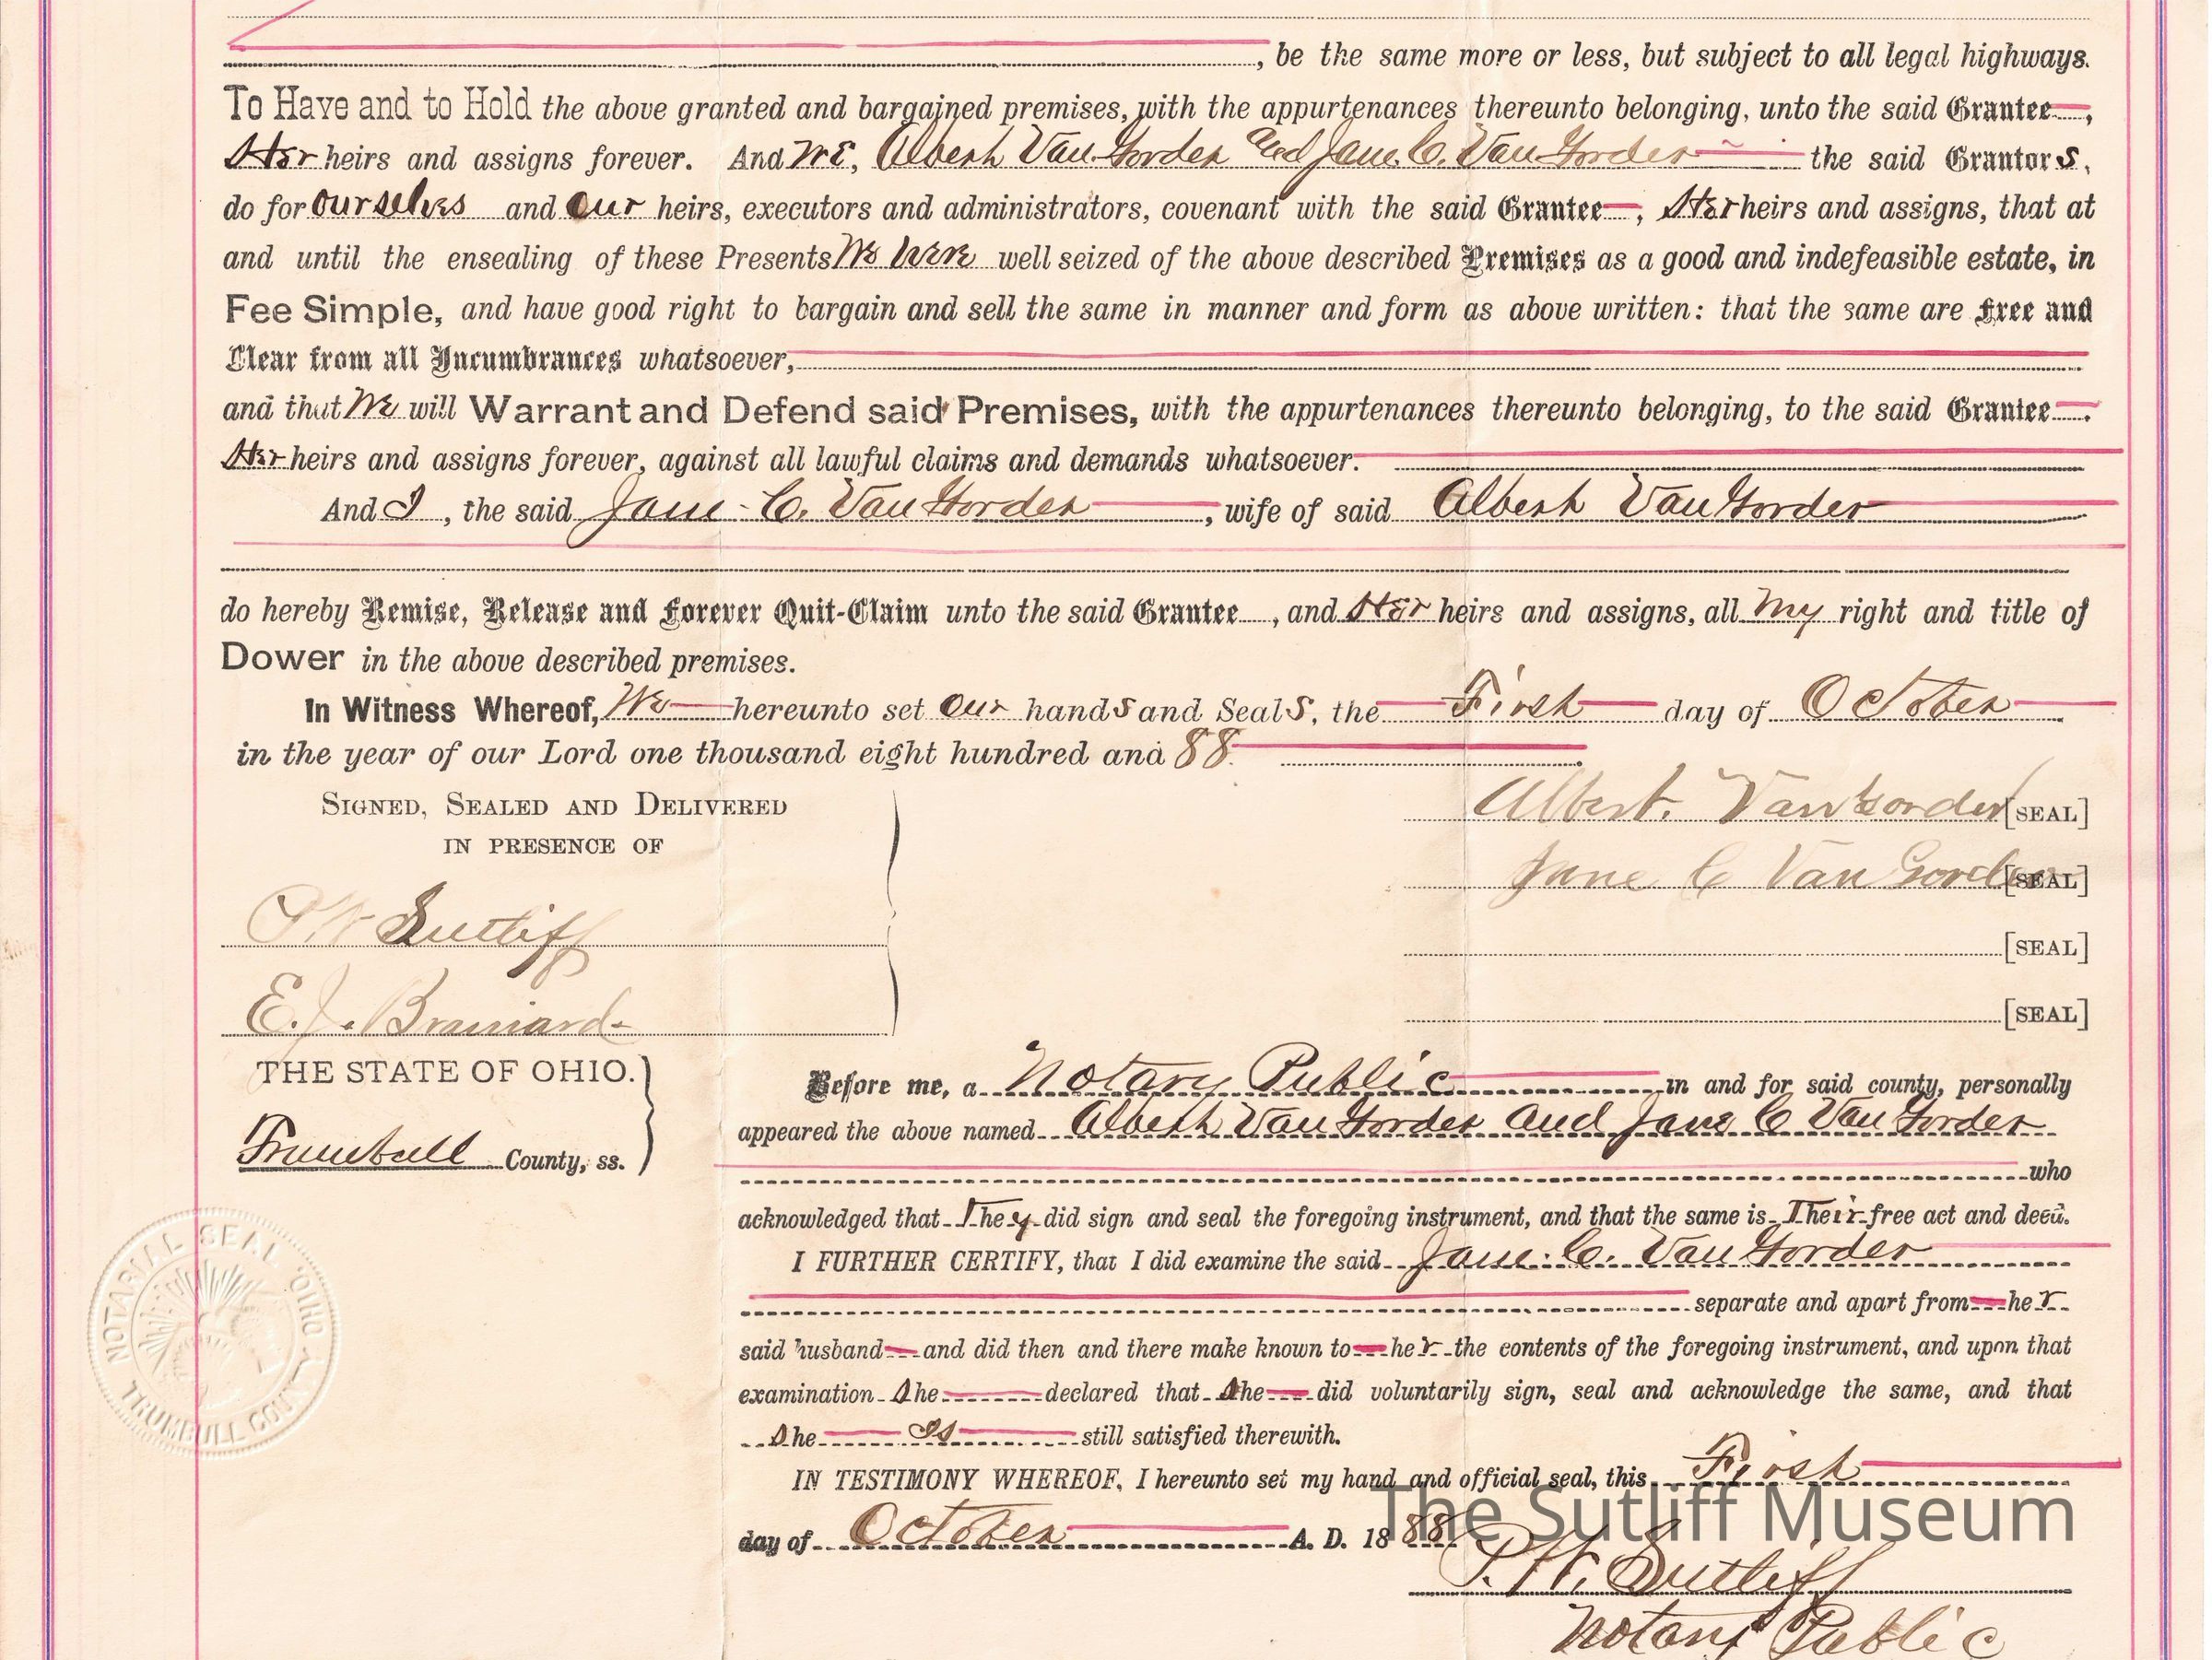 , be the same more or less, but subject to all legal highways.
To Have and to Hold the above granted and bargained premises, with the appurtenances thereunto belonging, unto the said Grantee,
Her heirs and assigns forever. And We, Albert Van Gorder and Jane C. Van Gorder the said Grantors,
do for ourselves and our heirs, executors and administrators, covenant with the said Grantee, Her heirs and assigns, that at
and until the ensealing of these Presents We were well seized of the above described Premises as a good and indefeasible estate, in
Fee Simple, and have good right to bargain and sell the same in manner and form as above written: that the same are Free and
Clear from all Incumbrances whatsoever,
and that We will Warrant and Defend said Premises, with the appurtenances thereunto belonging, to the said Grantee.
Her heirs and assigns forever, against all lawful claims and demands whatsoever.
And I, the said Jane C. Van Gorder, wife of said Albert Van Gorder
do hereby Remise, Release and Forever Quit-Claim unto the said Grantee, and Her heirs and assigns, all my right and title of
Dower in the above described premises.
In Witness Whereof, We hereunto set our hands and Seals, the First day of October
in the year of our Lord one thousand eight hundred and 88.
SIGNED, SEALED AND DELIVERED
IN PRESENCE OF
Albert. Van Gorder [SEAL]
Jane C Van Gorder [SEAL]
P W Sutliff
[SEAL]
E. J. Brainard
[SEAL]
THE STATE OF OHIO.
Trumbull County, ss.
Before me, a Notary Public in and for said county, personally
appeared the above named Albert Van Gorder and Jane C Van Gorder
who
acknowledged that They did sign and seal the foregoing instrument, and that the same is Their free act and deed.
I FURTHER CERTIFY, that I did examine the said Jane. C. Van Gorder
separate and apart from her
said husband and did then and there make known to her the contents of the foregoing instrument, and upon that
examination she declared that she did voluntarily sign, seal and acknowledge the same, and that
she Is still satisfied therewith.
IN TESTIMONY WHEREOF, I hereunto set my hand and official seal, this First
day of October A. D. 1888
P. W. Sutliff
Notary Public
NOTARIAL SEAL OHIO
TRUMBULL COUNTY
The Sutliff Museum